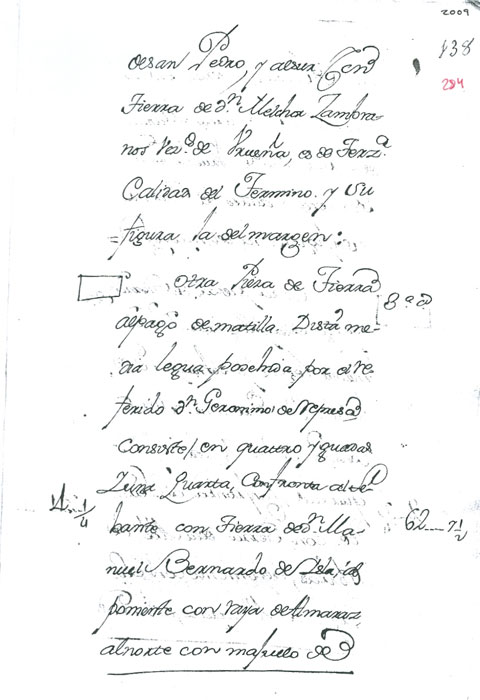 2009
138
284
de san Pedro, y al sur Con
Tierra de Dn. Melchor Zambra-
nos Vez.o de Urueña, es de Terz.a
Calidad del Termino. y su
=figura la del margen:
Otra Pieza de Tierra
8a
al pago de matilla. Dista me-
dia legua posehida por el re-
ferido Dn. Geronimo de
Consiste en quattro Yguadas
Zuna Quarta, Confronta al le-
4 1/4
bante con Tierra de Dn. Ma-
62 7 1/2
nuel Bernardo de Isla, al
poniente con raya de Almaraz
al norte con majuelo de D